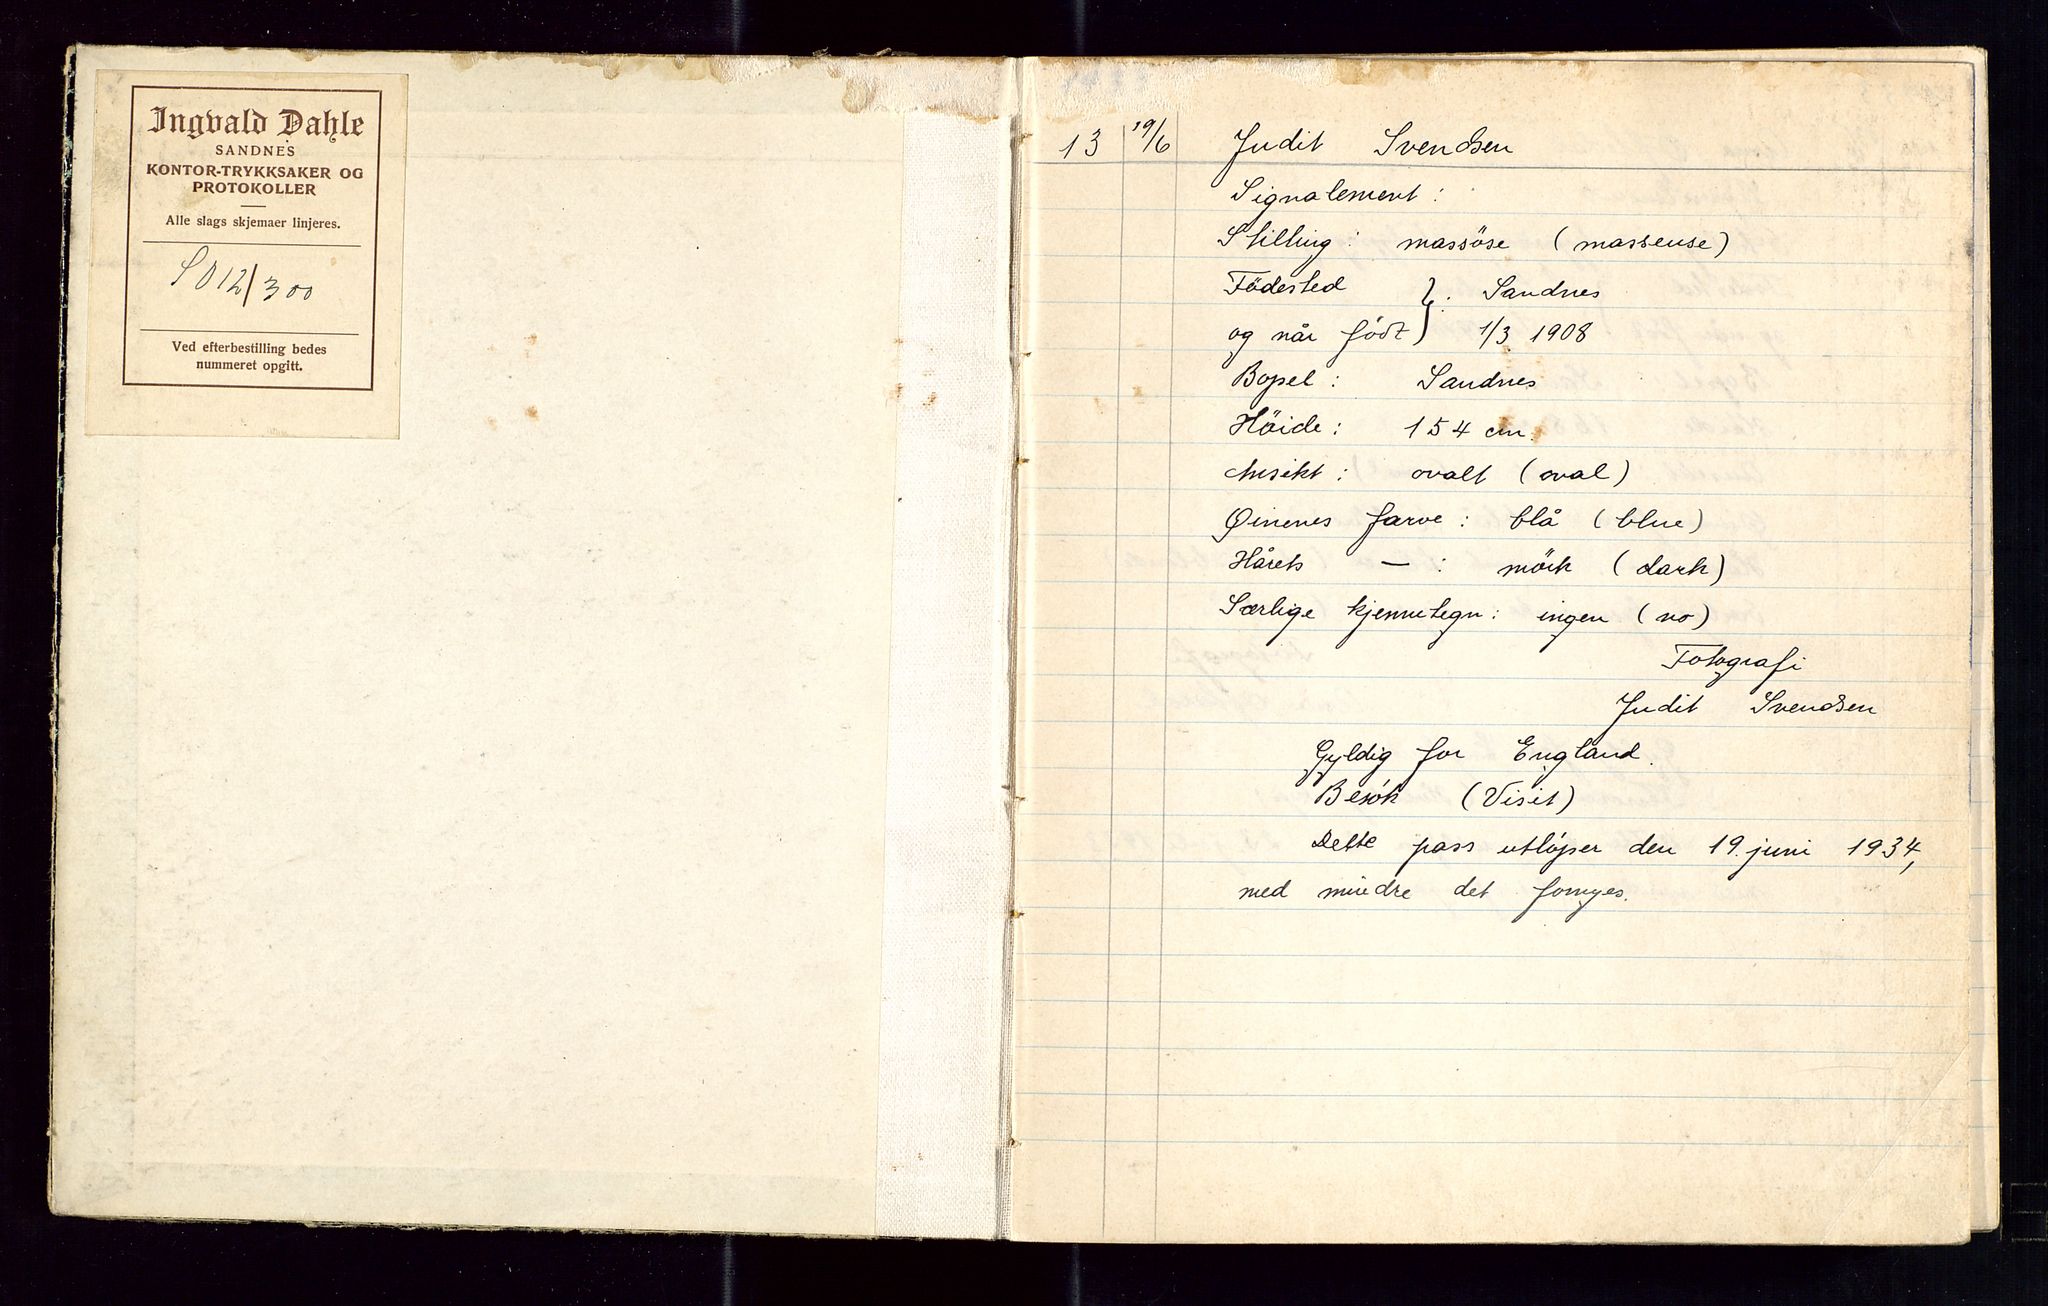 Ingvald Dahle
SANDNES
KONTOR-TRYKKSAKER OG
PROTOKOLLER
Alle slags skjemaer linjeres.
S D 12/300
Ved efterbestilling bedes
nummeret opgitt.
13 19/6 Judit Svendsen
Signalement:
Stilling: massöse (masseuse)
Födested }: Sandnes
og når født) 1/3 1908
Bopel: Sandnes
Höide: 154 cm.
Ansikt: ovalt (oval)
Øinenes farve: blå (blue)
Hårets — : mörk (dark)
Særlige kjennetegn: ingen (no)
Fotografi
Judit Svendsen
Gyldig for England.
Besøk (Visit)
Dette pass utløper den 19. juni 1934,
med mindre det fornyes.